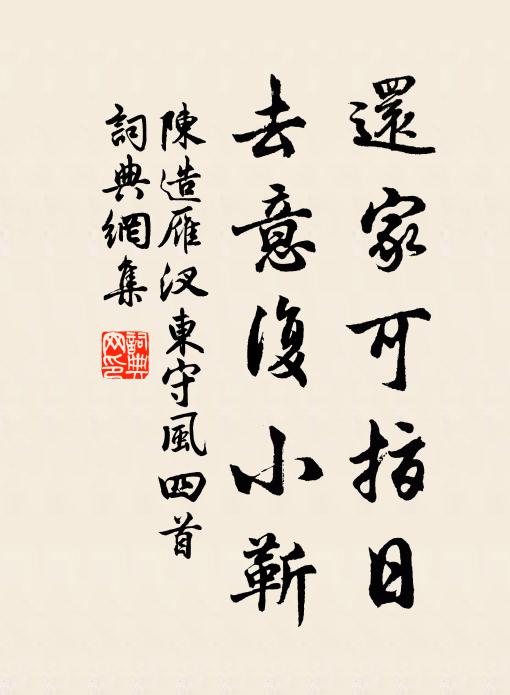 還家可指日
去意復小靳
陳造雁汊東守風四首
詞典網集
詞典網印